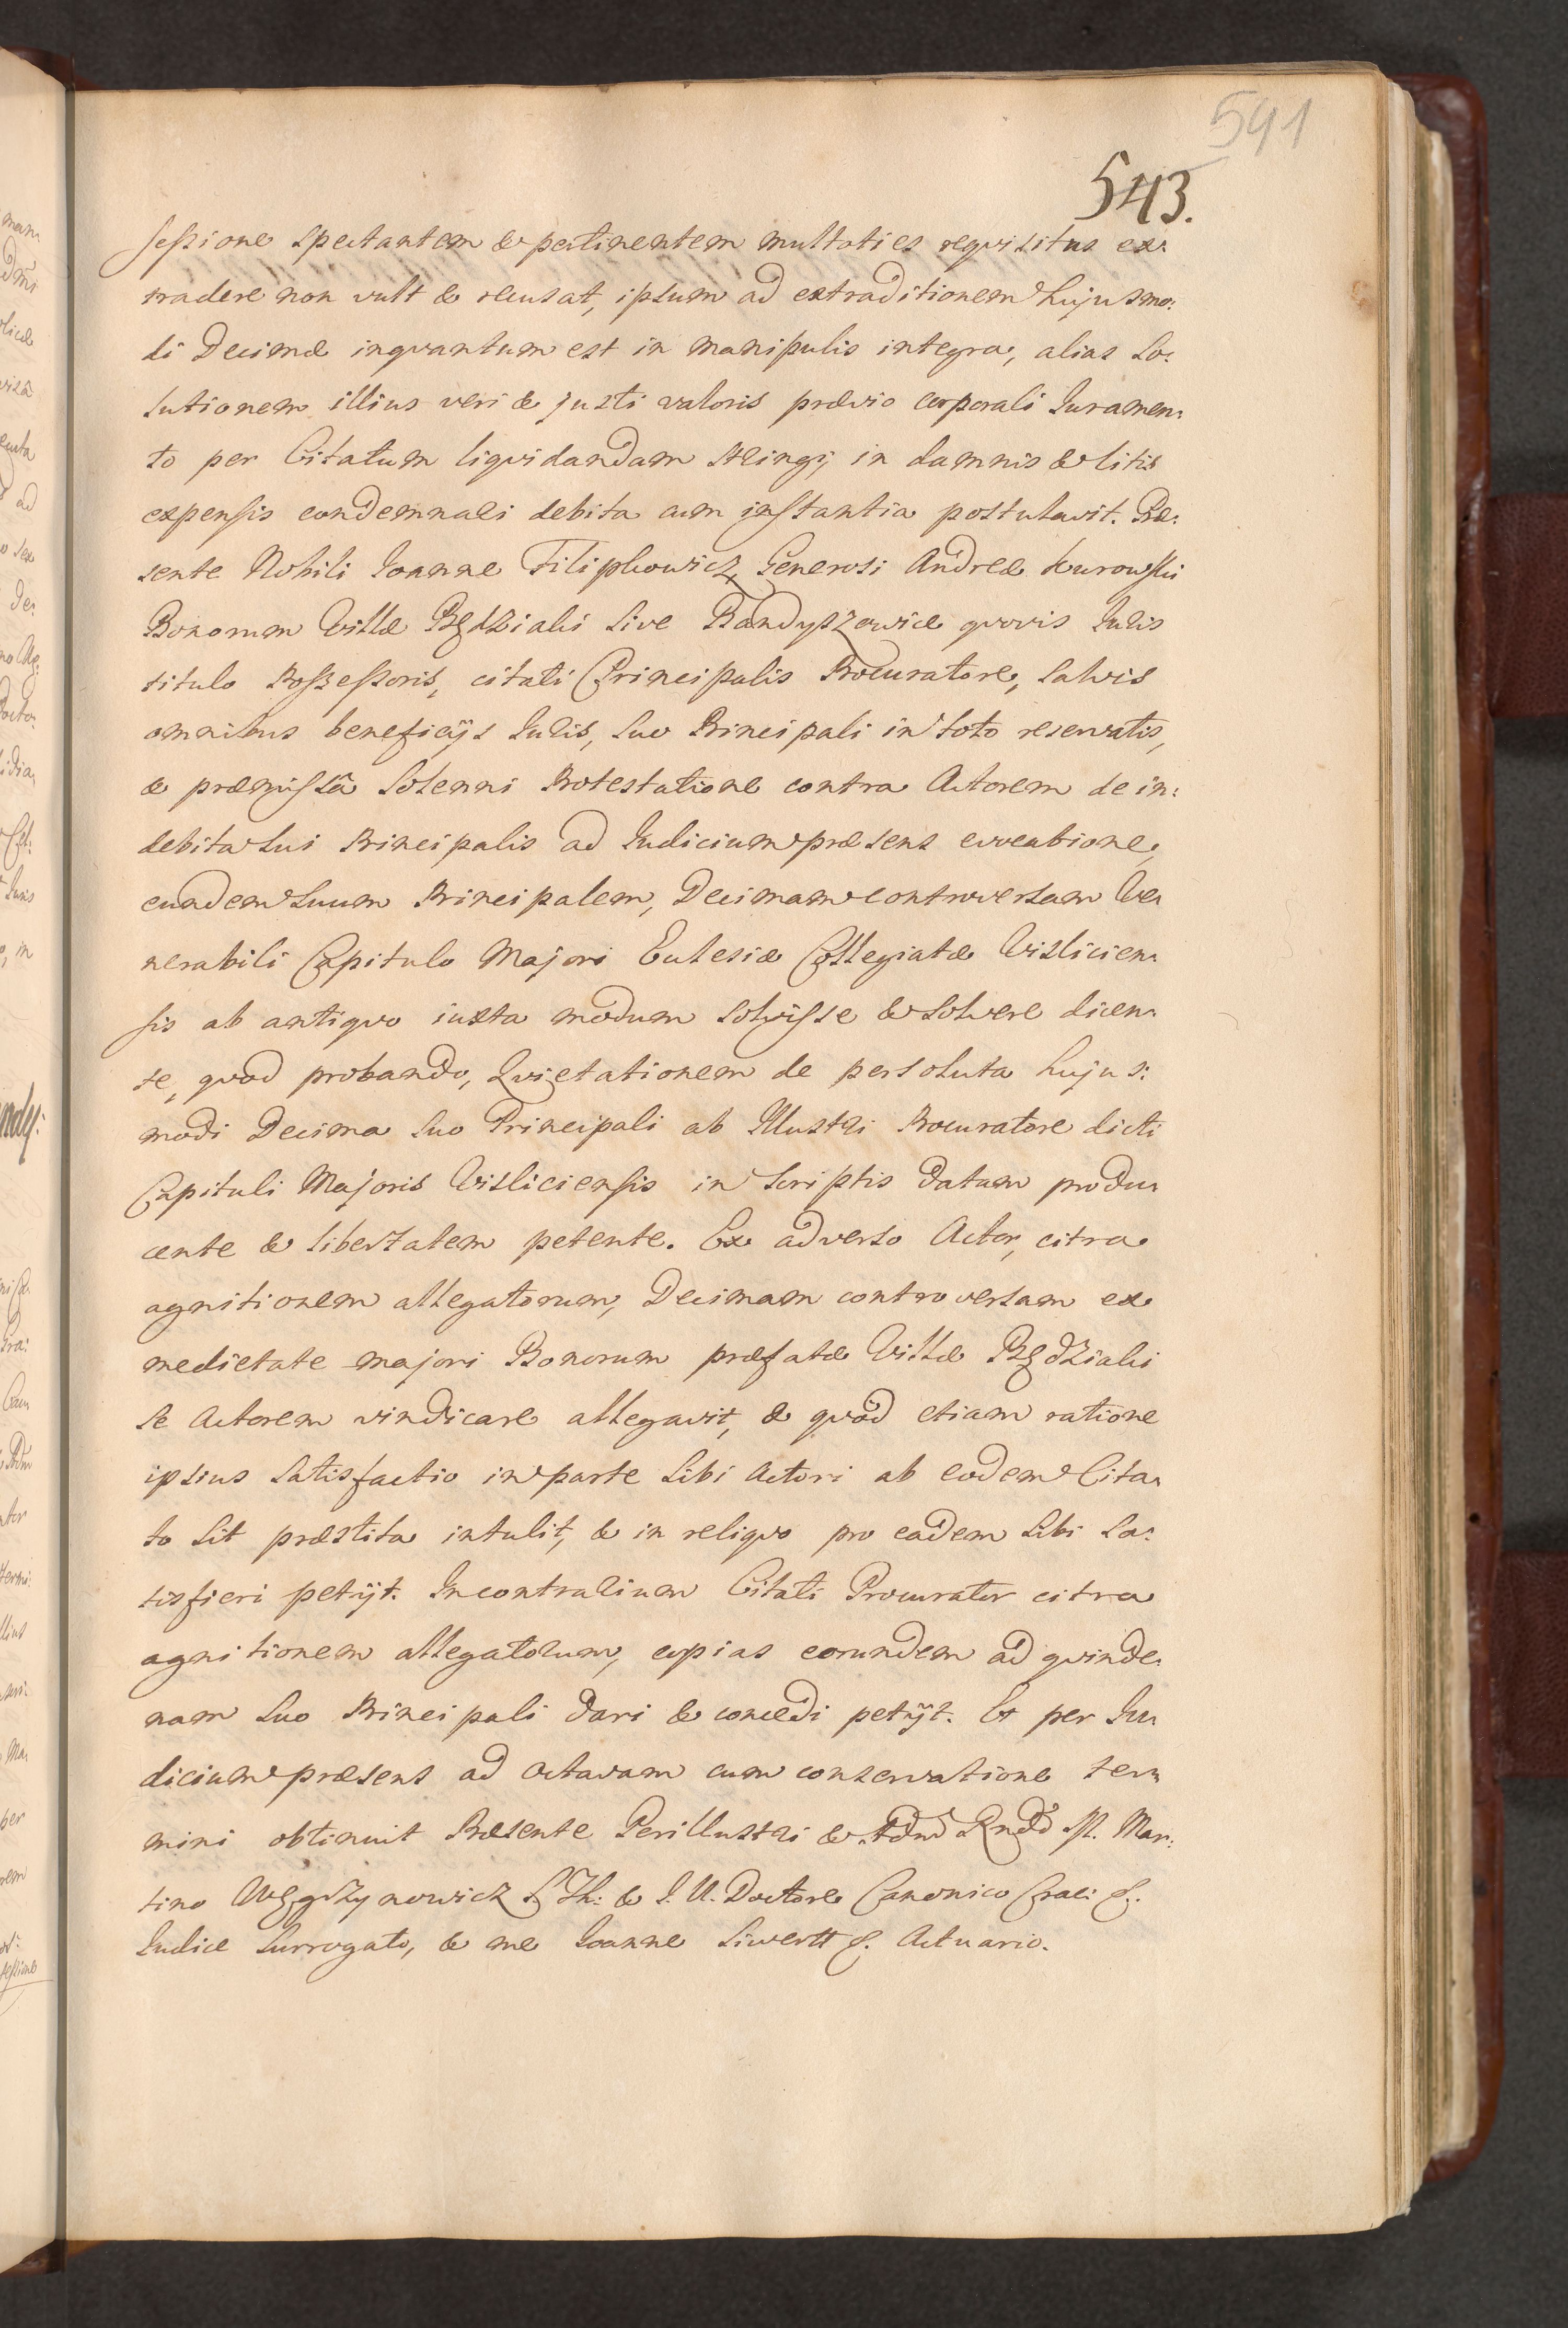 591
543.
sessione spectantem & pertinentem multoties requisitus ex:
tradere non vult & recusat, ipsum ad extraditionem hujusmo:
di Decimæ inqvantum est in manipulis integra, alias so:
lutionem illius veri & justi valoris prævio corporali Iuramen:
to per Citatum liqvidandam stringi, in damnis & litis
expensis condemnari debita cum instantia postulavit. Præ:
sente Nobili Ioanne Filipkowicz Generosi Andreæ Kurowski
Bonorum Villæ Będziaki sive Bandyszowice qvovis Iuris
titulo Possessoris, citati Principalis Procuratore, salvis
omnibus beneficijs Iuris, suo Principali in toto reservatis,
& præmissâ solenni Protestatione contra Actorem de in:
debita sui Principalis ad Iudicium præsens evocatione,
eundem suum Principalem, Decimam controversam Ve:
nerabili Capitulo Majori Eclesiæ Collegiatæ Visliciens:
sis ab antiqvo iuxta modum solvisse & solvere dicen:
te, qvod probando, Qvietationem de persoluta hujus:
modi Decima suo Principali ab Illustri Procuratore dicti
Capituli Majoris Visliciensis in scriptis datam produ:
cente & libertatem petente. Ex adverso Actor, citra
agnitionem allegatorum, Decimam controversam ex
medietate majori Bonorum præfatæ Villæ Będziaki
se Actorem vindicare allegavit, & qvod etiam ratione
ipsius satisfactio in parte sibi Actori ab eodem Cita:
to sit præstita intulit, & in reliqvo pro eadem sibi sa:
tisfieri petijt. Incontrarium Citati Procurator citra
agnitionem allegatorum, copias eorundem ad qvinde:
nam suo Principali dari & concedi petijt. Et per Iu:
dicium præsens ad octavam cum conservatione ter:
mini obtinuit Præsente Perillustri & Adm Rndo M. Mar:
tino Węgrzynowicz S. Th: & I. U. Doctore Canonico Crac: &.
Iudice Surrogato, & me Ioanne Siwertt &. Actuario.